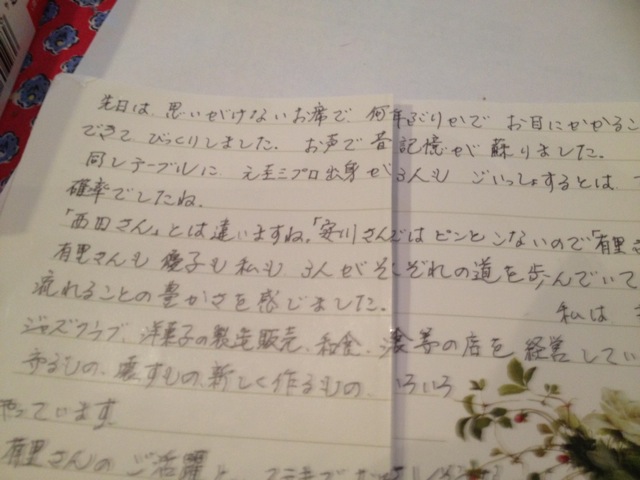 先日は、思いがけないお席で、何年ぶりかで お目にかかるこ
できて びっくりしました。 お声で昔の記憶が蘇りました。
同じテーブルに、元 プロ出身が3人も ごいっしょするとは、
確率でしたね。
「西田さん」とは違いますね。「安川さん」ではピンとこないので「有里さ
有里さんも 慶子も 私も 3人がそれぞれの道を歩んでいて
流れることの豊かさを感じました。 私は
ジャズクラブ、洋菓子の製造販売、和食、 等の店を 経営してい
守るもの、壊すもの、新しく作るもの いろいろ
やっています。
有里さんの ご活躍と